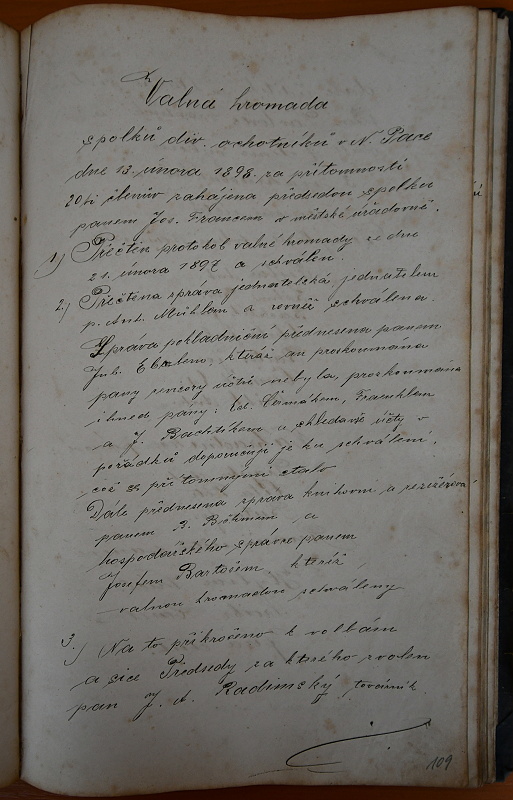 Valná hromada
spolků div. ochotníků v N. Pace
dne 13. února 1898 za přítomnosti
20ti členův zahájena předsedou spolku
panem Jos. Francem v městské úřadovně.
1) Přečten protokol valné hromady ze dne
21. února 1897 a schválen.
2.) Přečtena zpráva jednatelská jednatelem
p. Ant. Mühlem a rovněž schválena.
Zpráva pokladniční přednesena panem
Jul. kteráž an proskoumána
pany revisory účtů nebyla, proskoumána
ihned pány: Ed. Čermákem, Frauchlem
a J. Bachtíkem a shledavše účty v
pořádků doporučují je ku schválení,
což se přítomnými stalo
Dále přednesena zpráva knihovní a režisérová
panem J. Böhmem a
hospodářského správce panem
Josefem Bartošem, kteréž
valnou hromadou schváleny
3.) Na to přikročeno k volbám
a sice Předsedy za kterého zvolen
pan J. A. Radimský továrník
109